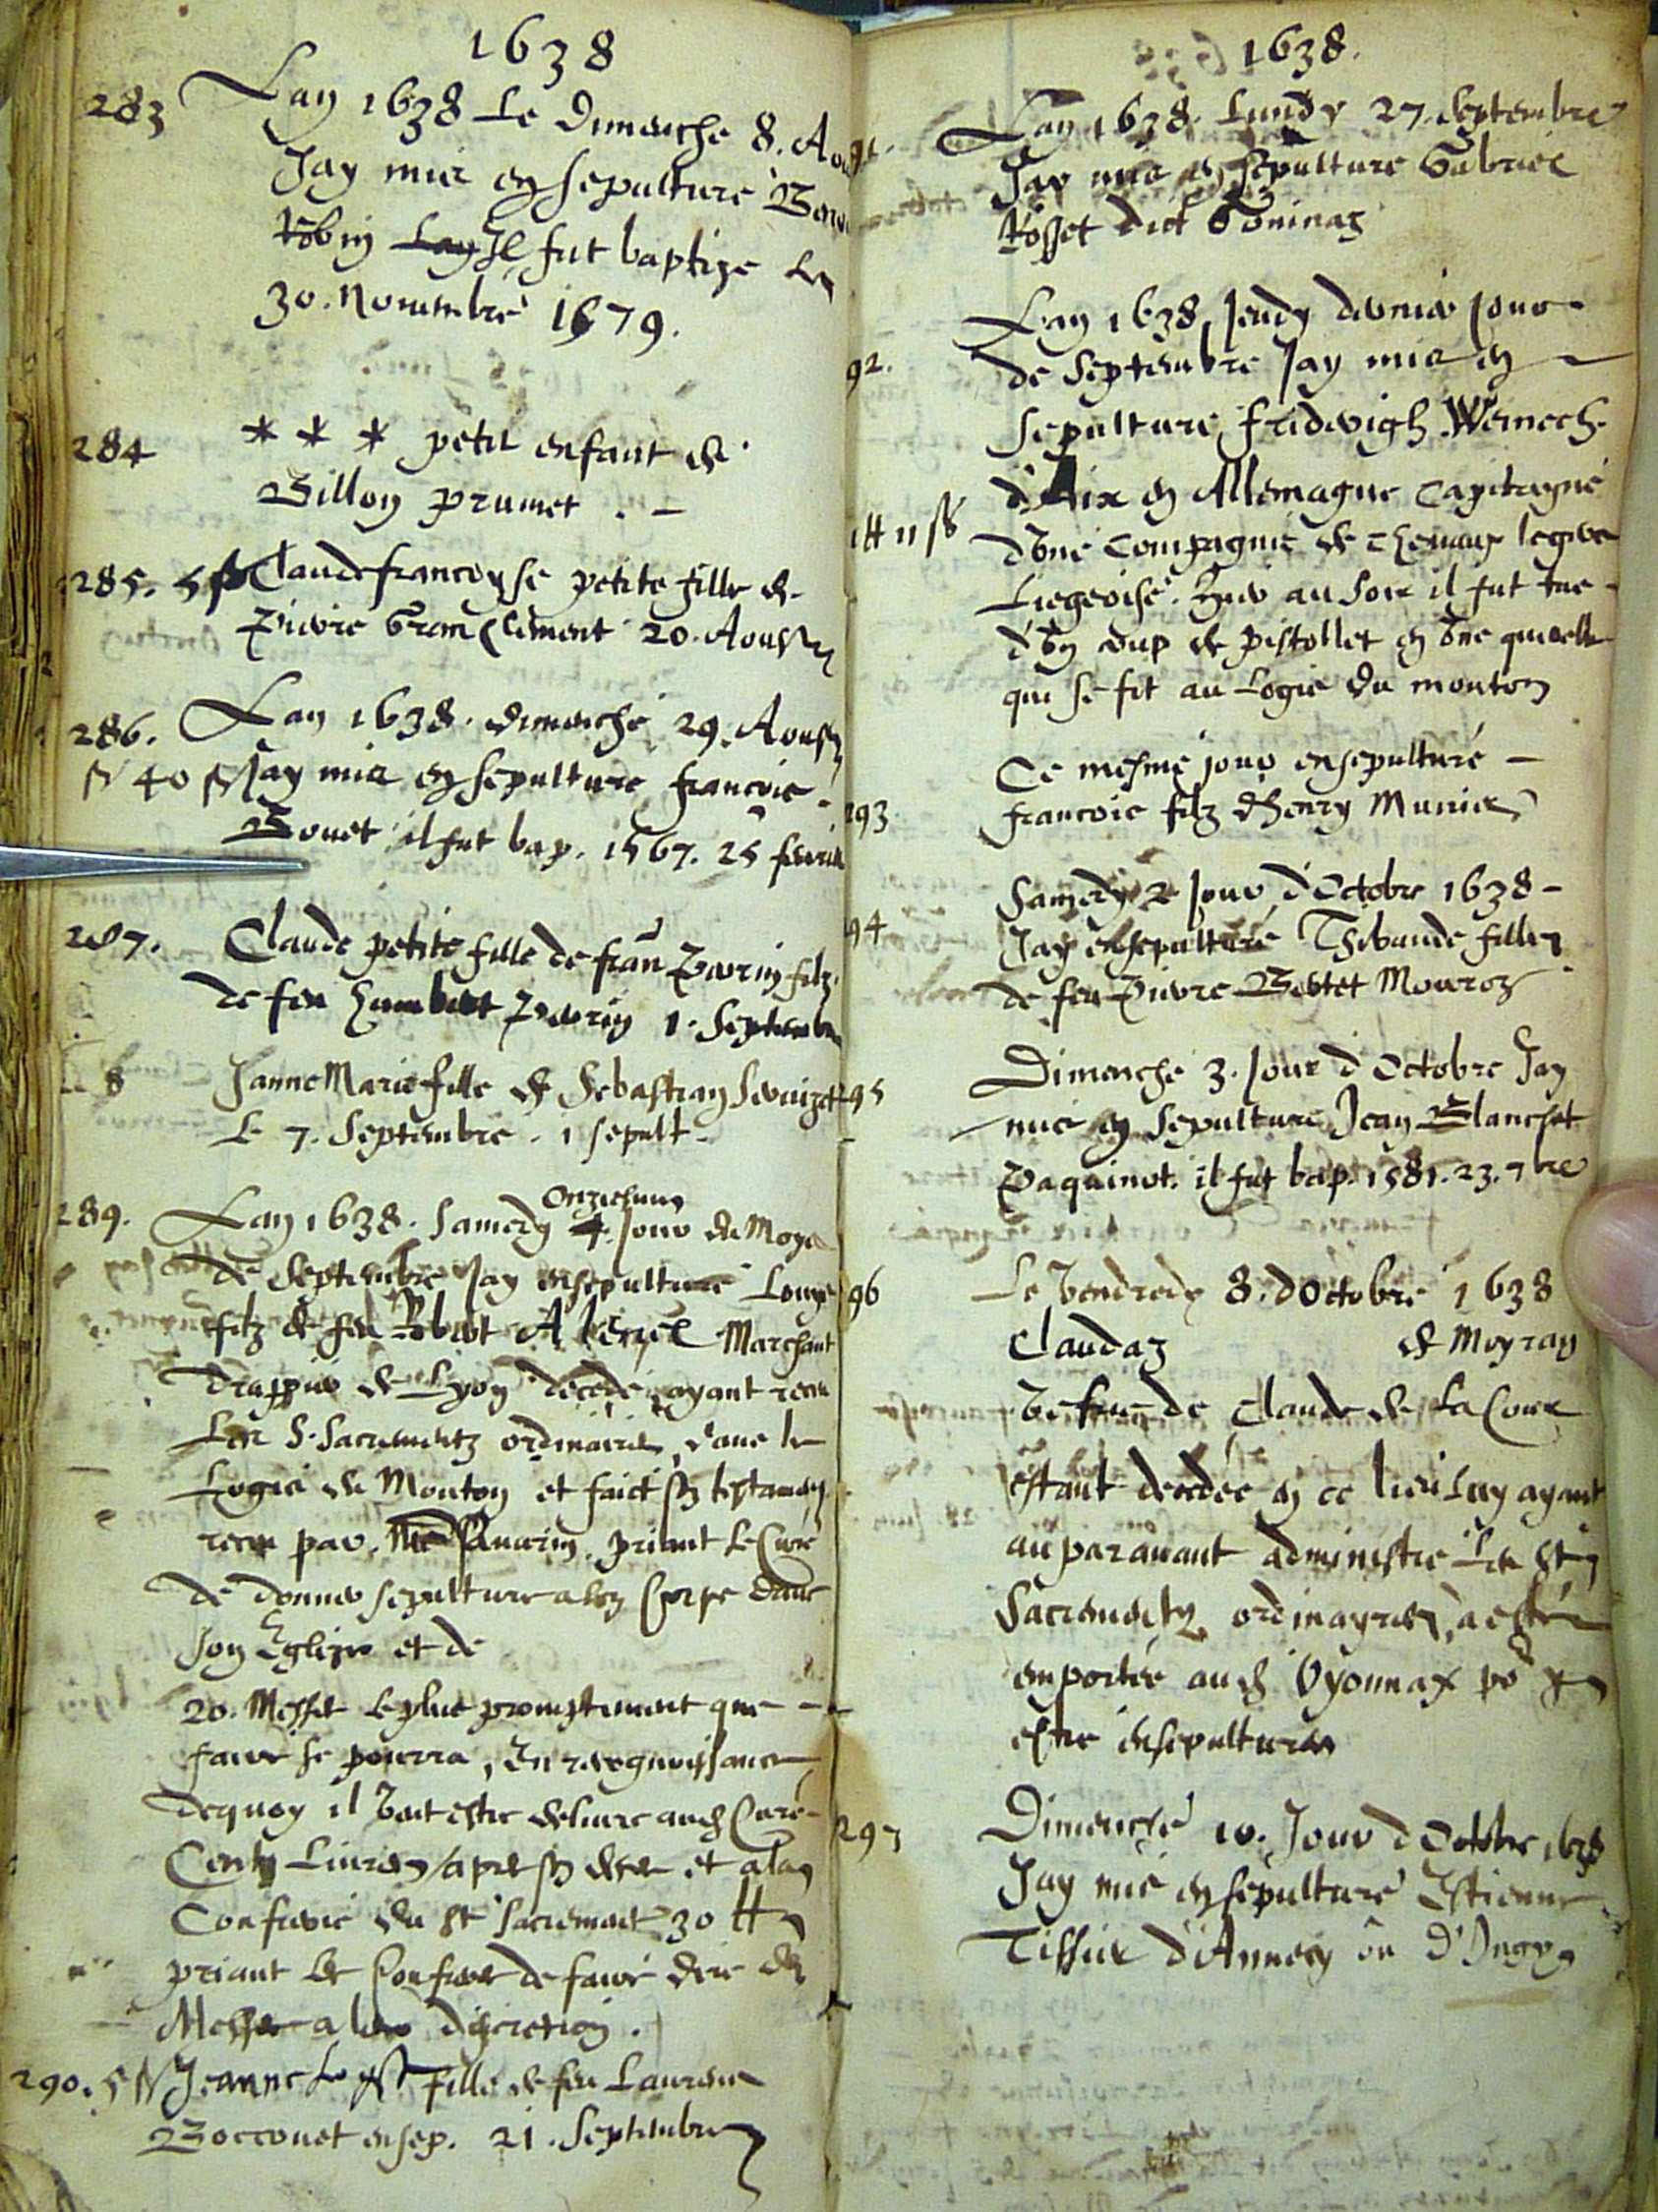 1638
283 Lan 1638 Le Dimenche 8. Aou
Jay mis en sepulture
Robin Lay Il fut baptize Le
30. Novembre 1679.
284 * * * petit enfant de
Billon prumet . -
285. 5 ss Claude francoyse petite fille de
Pierre Gran Clement 20. Aoust
286. Lan 1638. dimenche 29. Aoust
40 Jay mis en sepulture francois
Bouet il fut bap. 1567. 25 fevrie
287. Claude petite fille de fran Perrin filz
de feu humbert Perrin 1. Septembre
8 Janne Marie fille de Sebastian
Le 7. Septembre . 1 sepult -
Onziesme
289. Lan 1638. Samedy 4. jour du Moys
de Septembre Jay ensepulture Louys
filz de feu Robert Marchant
Drappier de Lyon decede ayant receu
Les S. Sacrementz ordinaires, dans le
Logis du Mouton et faict son testament
receu par Me Sauarin, priant Le Curé
de donner sepulture a son Corps dans
son Eglize et de
20. Messes le plus promptement que -
faire se pourra, En recognoissance
dequoy il veut estre deliure aud Curé
Cent Livres apres son deces et a la
Confrerie du St Sacrement 30 tt
priant les Confreres de faire dire des
Messes a leur discretion .
290. 5 Jeanne fille de feu Laurent
Bocconet ensep. 21. Septembre
1638.
91. Lan 1638. Lundy 27. septembre
Jay mis en sepulture Gabriel
Rosset dict Toninaz
92. Lan 1638 Jeudy dernier jour
de Septembre Jay mis en
sepulture fridevigh Wernech
d'Aix en Allemagne Capitayne
1 tt 11 ss dune Compagnie de
Liegeoise. Hier au soir il fut tue
d'un coup de pistollet en une querelle
qui se fit au Logis du mouton
Ce mesme jour ensepulturé -
293 francois filz dhenry Munier
Samedy 2 jour d'Octobre 1638 -
94 Jay ensepulturé Thibaude fille
de feu Pierre Bertet Mouroz
Dimenche 3. jour d'Octobre Jay
95 mis en sepulture Jean Blanchet
Paquinot. il fut bap. 1581. 23. 7bre
96 Le Vendredy 8. dOctobre 1638
Claudaz de Moyran
Vefue de Claude de La Cour
estant decedée en ce lieu Luy ayant
auparauant administre les Stz
Sacrementz ordinayres, a esté
emportée aud Oyonnax po y
estre ensepulturée
297 Dimenche 10. Jour dOctobre 1638
Jay mis en sepulture Estienne
Tissier d'Annecy ou D'Ingy